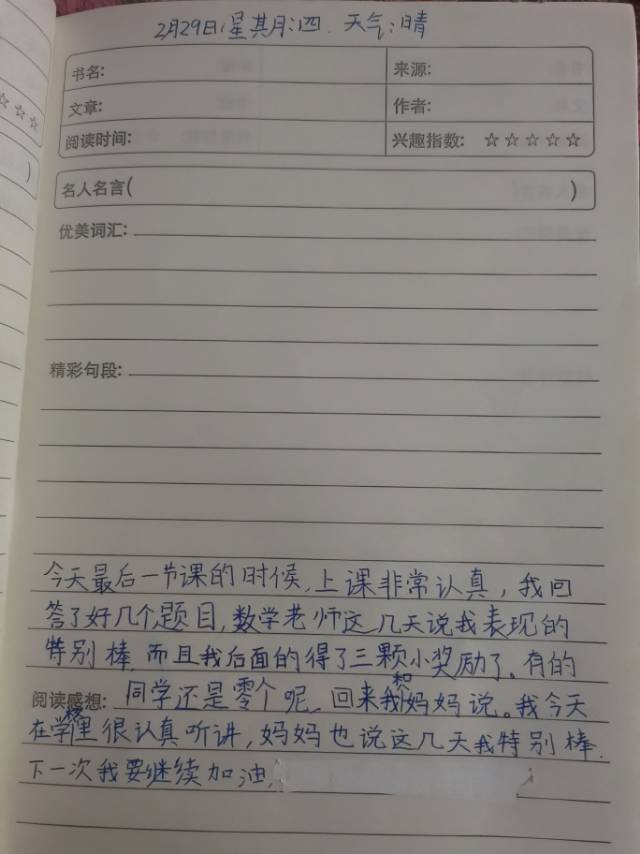 2月29日星期四 天气:晴
书名: 来源:
文章: 作者:
阅读时间: 兴趣指数: ☆☆☆☆☆
名人名言( )
优美词汇:
精彩句段:
今天最后一节课的时候,上课非常认真,我回
答了好几个题目,数学老师这几天说我表现的
特别棒,而且我后面的得了三颗小奖励了。有的
阅读感想: 同学还是零个呢,回来我和妈妈说。我今天
在学校里很认真听讲,妈妈也说这几天我特别棒.
下一次我要继续加油,